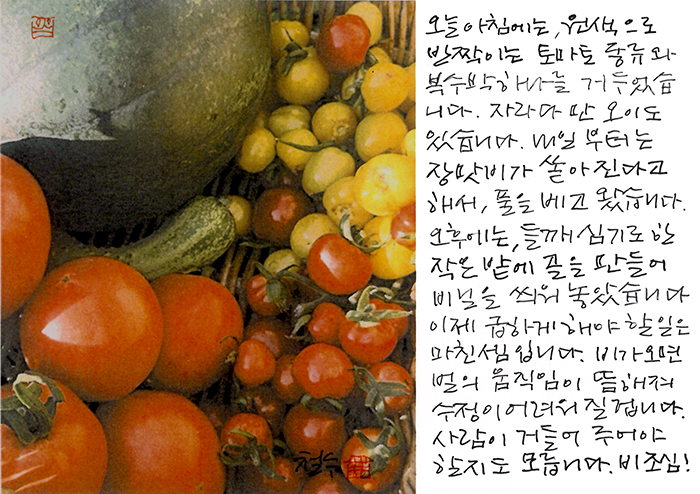 오늘 아침에는, 원색으로
반짝이는 토마토 종류와
복수박 하나를 거두었습
니다. 자라다 만 오이도
있습니다. 내일 부터는
장맛비가 쏟아진다고
해서, 풀을 베고 왔습니다.
오후에는, 들깨 심기로 한
작은 밭에 골을 만들어
비닐을 씌워 놓았습니다
이제 급하게 해야 할 일은
마친 셈입니다. 비가 오면
벌의 움직임이 뜸해져
수정이 어려워 질겁니다.
사람이 거들어 주어야
할지도 모릅니다. 비조심!
철수